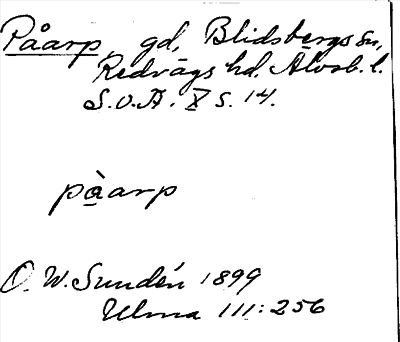 Påarp, gd, Blidsbergs sn,
Redvägs hd. Älvsb. l.
S.O.Ä. X s. 14.
pàarp
O. W. Sundén 1899
Ulma 111:256